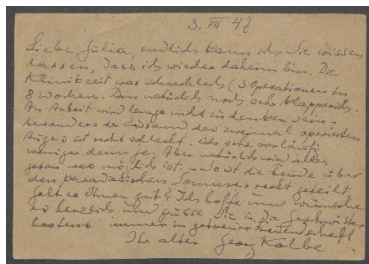 3. VIII 47
Liebe Julia, endlich kann ich Sie wissen
lassen, dass ich wieder daheim bin. Die
Klinikzeit war schrecklich (3 Operationen in
8 Wochen. Bin natürlich noch sehr klapperich.
An Arbeit wird lange nicht zu denken sein
besonders der Zustand des zweimal operierten
Auges ist recht schlecht. Also sehe vorläufig
weniger denn je. Aber natürlich wird alles
getan was möglich ist. und so ist die Freude über
den paradiesischen Sommer recht geteilt
Geht es Ihnen gut? Ich hoffe und wünsche
es herzlich und grüsse Sie u. die Geschwister
bestens immer in getreuer Freundschaft
Ihr alter Georg Kolbe